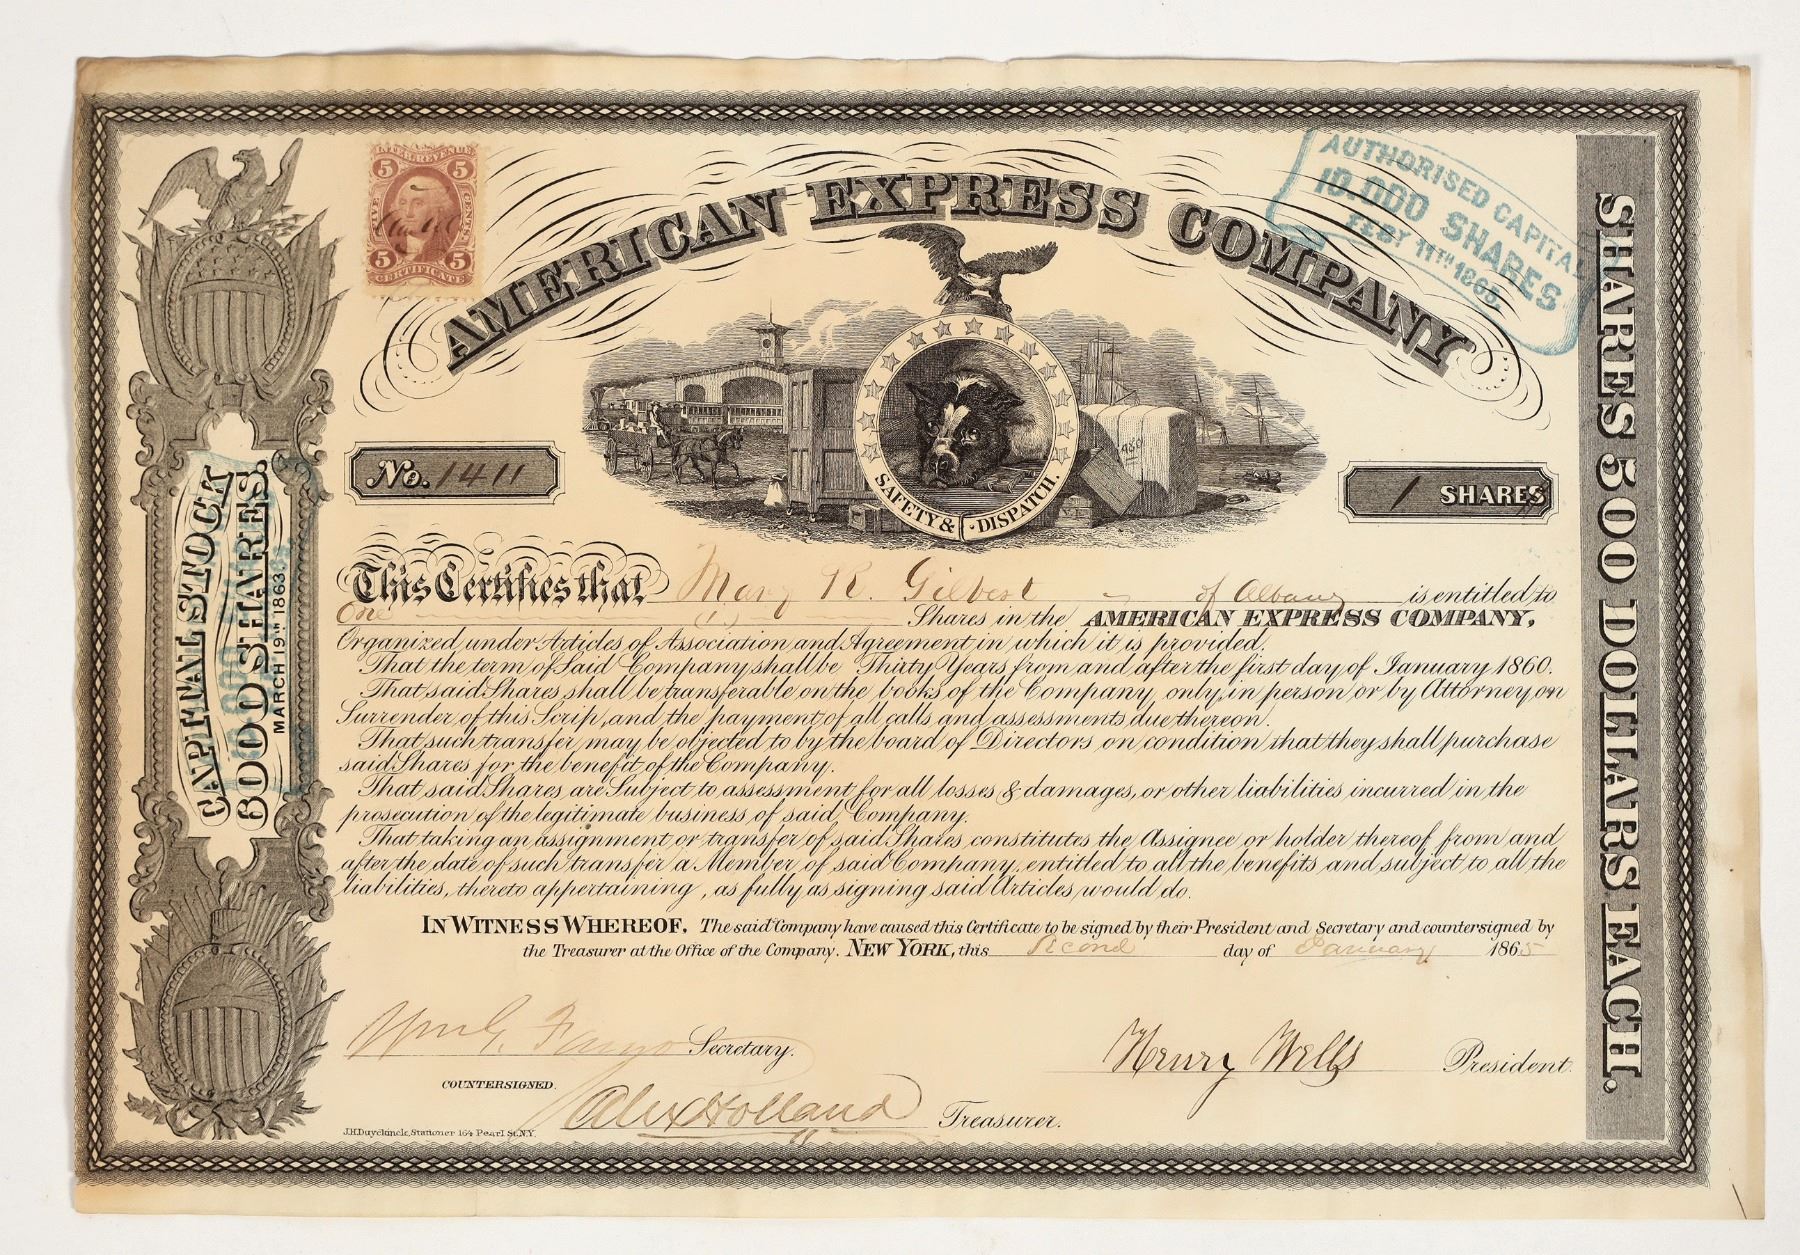 INTER. REVENUE
5 5
FIVE CENTS.
5 5
CERTIFICATE
AMERICAN EXPRESS COMPANY
AUTHORISED CAPITAL
10.000 SHARES
FEBY 11TH 1865.
SAFETY & DISPATCH.
No. 1411
1 SHARES
This Certifies that Mary R. Gilbert of Albany is entitled to
One (1) Shares in the AMERICAN EXPRESS COMPANY,
Organized under Articles of Association and Agreement in which it is provided.
That the term of Said Company shall be Thirty Years from and after the first day of January 1860.
That said Shares shall be transferable on the books of the Company only, in person or by Attorney, on
Surrender of this Scrip, and the payment of all calls and assessments due thereon.
That such transfer may be objected to by the board of Directors on condition that they shall purchase
said Shares for the benefit of the Company.
That said Shares are Subject to assessment for all losses & damages, or other liabilities incurred in the
prosecution of the legitimate business of said Company.
That taking an assignment or transfer of said Shares constitutes the Assignee or holder thereof from and
after the date of such transfer a Member of said Company, entitled to all the benefits and subject to all the
liabilities, thereto appertaining, as fully as signing said Articles would do.
IN WITNESS WHEREOF, The said Company have caused this Certificate to be signed by their President and Secretary and countersigned by
the Treasurer at the Office of the Company. NEW YORK, this Second day of January 1865
Wm G. Fargo Secretary.
Henry Wells President.
COUNTERSIGNED.
Alex Holland Treasurer.
J.H. Duyckinck, Stationer 164 Pearl St. N.Y.
CAPITAL STOCK
6000 SHARES.
MARCH 19TH 1863.
SHARES 500 DOLLARS EACH.